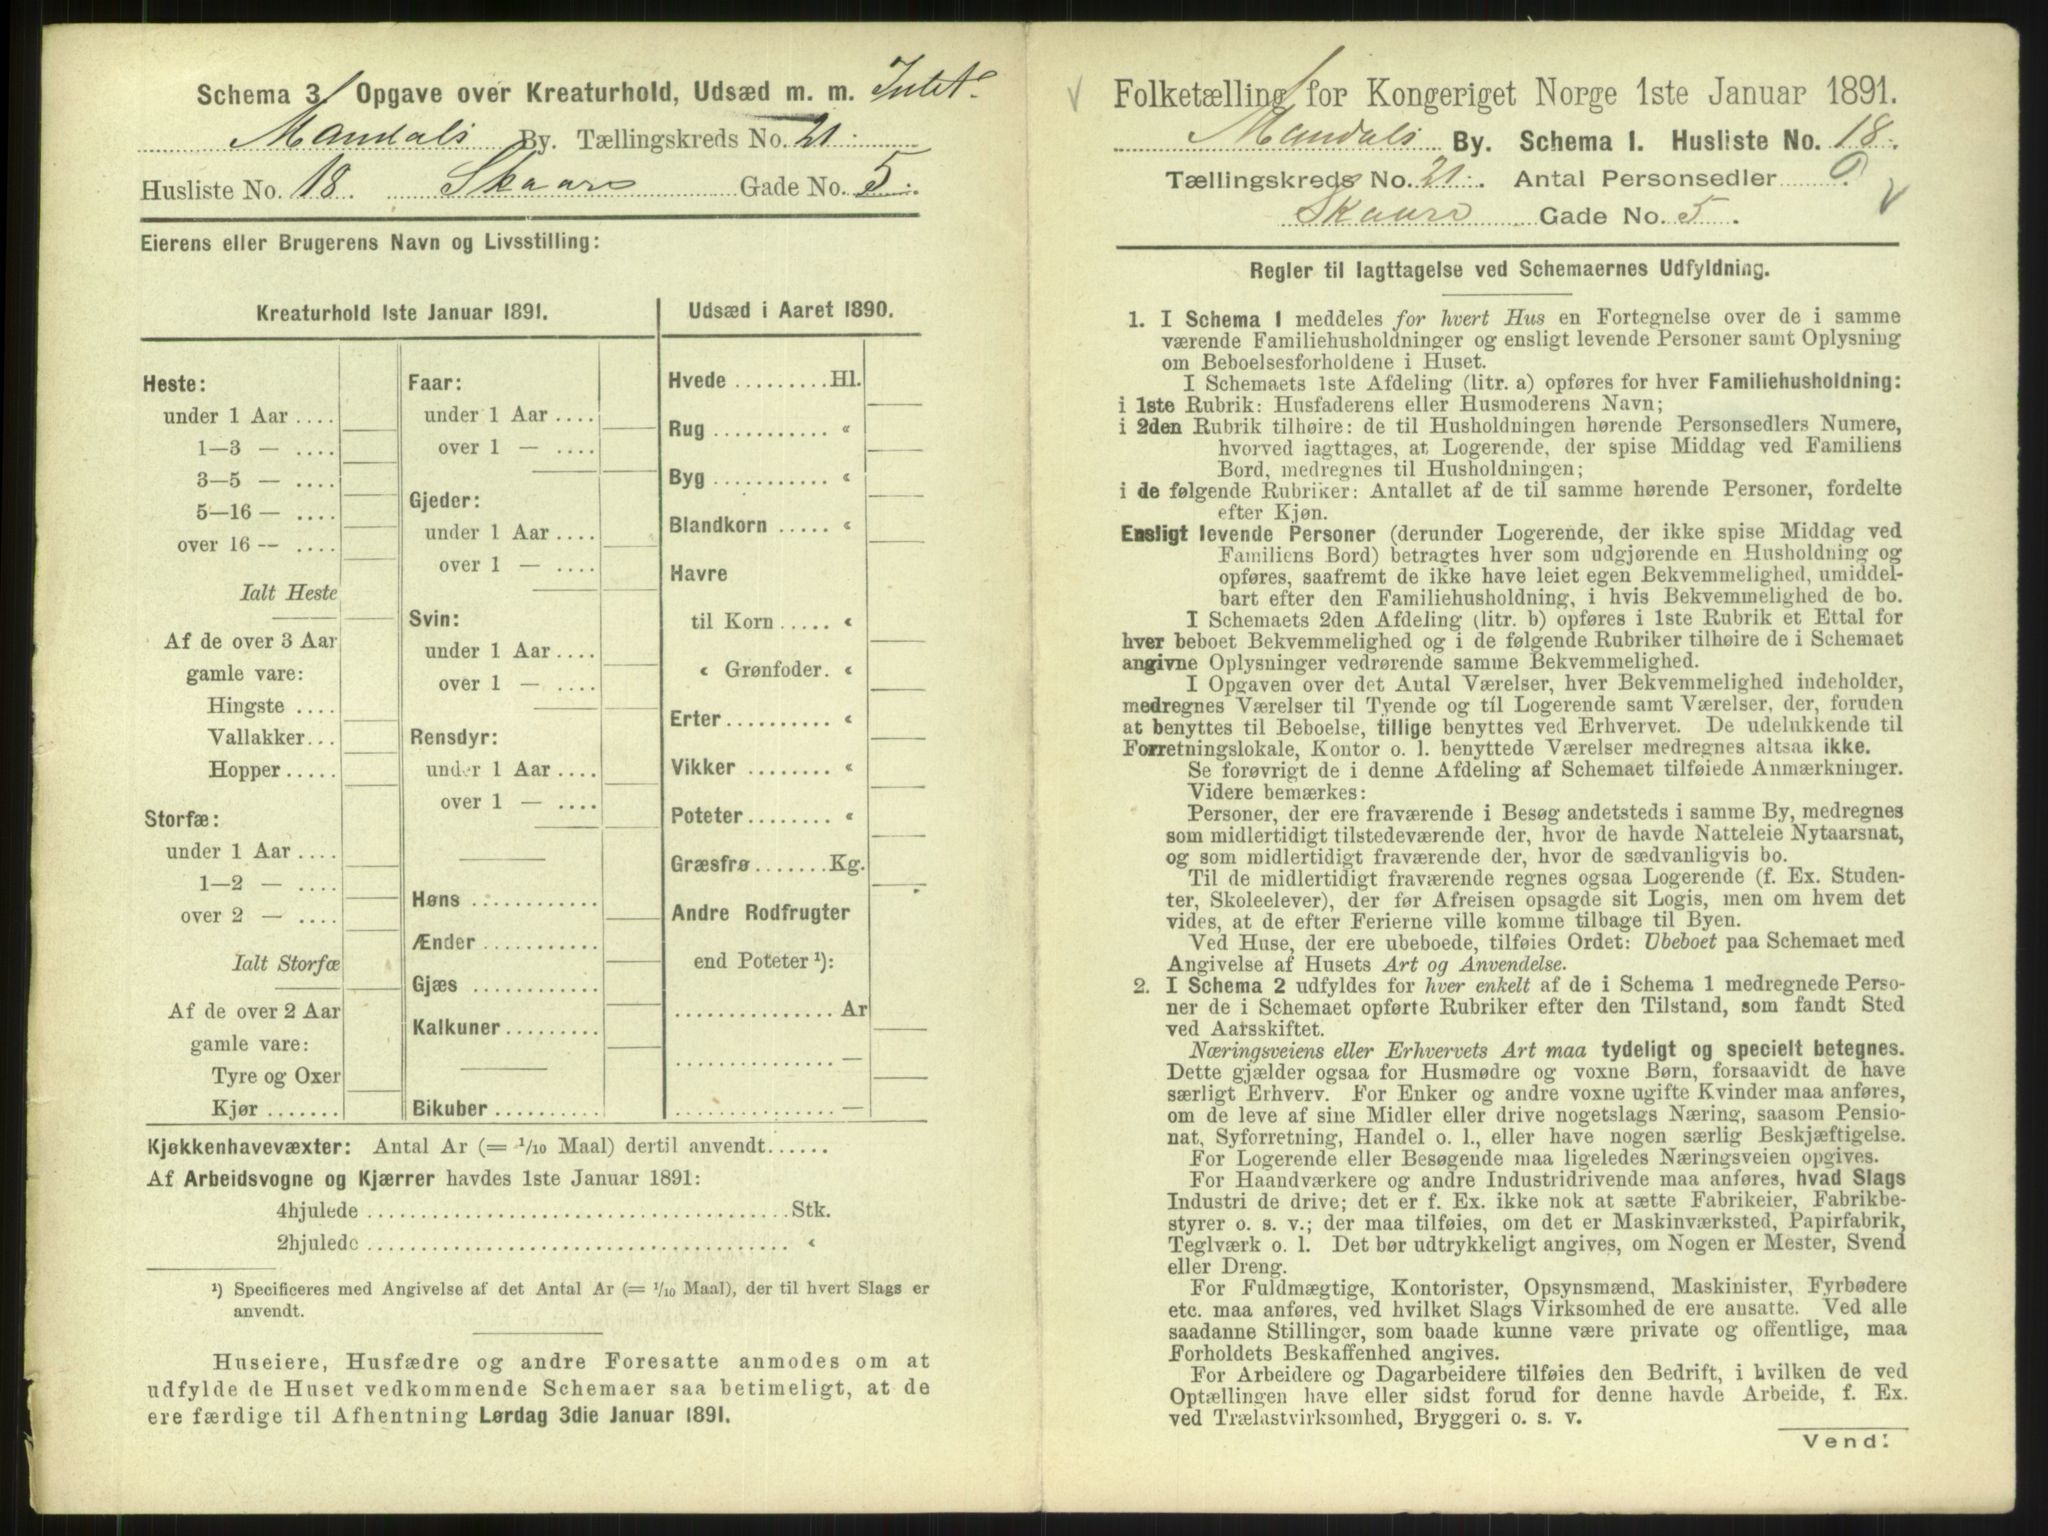 Schema 3. Opgave over Kreaturhold, Udsæd m. m. Intet.
Mandals By. Tællingskreds No. 21.
Husliste No. 18. Skaare Gade No. 5.
Eierens eller Brugerens Navn og Livsstilling:
Kreaturhold 1ste Januar 1891.
Heste:
under 1 Aar ....
1—3 — ....
3—5 — ....
5—16 — ....
over 16 — ....
Ialt Heste
Af de over 3 Aar
gamle vare:
Hingste ....
Vallakker...
Hopper.....
Storfæ:
under 1 Aar ....
1—2 — ....
over 2 — ....
Ialt Storfæ
Af de over 2 Aar
gamle vare:
Tyre og Oxer
Kjør .......
Faar:
under 1 Aar ....
over 1 — ....
Gjeder:
under 1 Aar ....
over 1 — ....
Svin:
under 1 Aar ....
over 1 — ....
Rensdyr:
under 1 Aar ....
over 1 — ....
Høns ............
Ænder ...........
Gjæs ............
Kalkuner.........
Bikuber ..........
Udsæd i Aaret 1890.
Hvede .........Hl.
Rug ........... «
Byg ........... «
Blandkorn ..... «
Havre
til Korn ..... «
« Grønfoder. «
Erter.......... «
Vikker ........ «
Poteter........ «
Græsfrø.......Kg.
Andre Rodfrugter
end Poteter ¹):
............... Ar
............... —
............... —
Kjøkkenhavevæxter: Antal Ar (= 1/10 Maal) dertil anvendt......
Af Arbeidsvogne og Kjærrer havdes 1ste Januar 1891:
4hjulede .......................................Stk.
2hjulede ....................................... «
¹) Specificeres med Angivelse af det Antal Ar (= 1/10 Maal), der til hvert Slags er
anvendt.
Huseiere, Husfædre og andre Foresatte anmodes om at
udfylde de Huset vedkommende Schemaer saa betimeligt, at de
ere færdige til Afhentning Lørdag 3die Januar 1891.
Folketælling for Kongeriget Norge 1ste Januar 1891.
Mandals By. Schema 1. Husliste No. 18.
Tællingskreds No. 21. Antal Personsedler
Skaare Gade No. 5.
Regler til Iagttagelse ved Schemaernes Udfyldning.
1. I Schema 1 meddeles for hvert Hus en Fortegnelse over de i samme
værende Familiehusholdninger og ensligt levende Personer samt Oplysning
om Beboelsesforholdene i Huset.
I Schemaets 1ste Afdeling (litr. a) opføres for hver Familiehusholdning:
i 1ste Rubrik: Husfaderens eller Husmoderens Navn;
i 2den Rubrik tilhøire: de til Husholdningen hørende Personsedlers Numere,
hvorved iagttages, at Logerende, der spise Middag ved Familiens
Bord, medregnes til Husholdningen;
i de følgende Rubriker: Antallet af de til samme hørende Personer, fordelte
efter Kjøn.
Ensligt levende Personer (derunder Logerende, der ikke spise Middag ved
Familiens Bord) betragtes hver som udgjørende en Husholdning og
opføres, saafremt de ikke have leiet egen Bekvemmelighed, umiddel-
bart efter den Familiehusholdning, i hvis Bekvemmelighed de bo.
I Schemaets 2den Afdeling (litr. b) opføres i 1ste Rubrik et Ettal for
hver beboet Bekvemmelighed og i de følgende Rubriker tilhøire de i Schemaet
angivne Oplysninger vedrørende samme Bekvemmelighed.
I Opgaven over det Antal Værelser, hver Bekvemmelighed indeholder,
medregnes Værelser til Tyende og til Logerende samt Værelser, der, foruden
at benyttes til Beboelse, tillige benyttes ved Erhvervet. De udelukkende til
Forretningslokale, Kontor o. l. benyttede Værelser medregnes altsaa ikke.
Se forøvrigt de i denne Afdeling af Schemaet tilføiede Anmærkninger.
Videre bemærkes:
Personer, der ere fraværende i Besøg andetsteds i samme By, medregnes
som midlertidigt tilstedeværende der, hvor de havde Natteleie Nytaarsnat,
og som midlertidigt fraværende der, hvor de sædvanligvis bo.
Til de midlertidigt fraværende regnes ogsaa Logerende (f. Ex. Studen-
ter, Skoleelever), der før Afreisen opsagde sit Logis, men om hvem det
vides, at de efter Ferierne ville komme tilbage til Byen.
Ved Huse, der ere ubeboede, tilføies Ordet: Ubeboet paa Schemaet med
Angivelse af Husets Art og Anvendelse.
2. I Schema 2 udfyldes for hver enkelt af de i Schema 1 medregnede Perso-
ner de i Schemaet opførte Rubriker efter den Tilstand, som fandt Sted
ved Aarsskiftet.
Næringsveiens eller Erhvervets Art maa tydeligt og specielt betegnes.
Dette gjælder ogsaa for Husmødre og voxne Børn, forsaavidt de have
særligt Erhverv. For Enker og andre voxne ugifte Kvinder maa anføres,
om de leve af sine Midler eller drive nogetslags Næring, saasom Pensio-
nat, Syforretning, Handel o. l., eller have nogen særlig Beskjæftigelse.
For Logerende eller Besøgende maa ligeledes Næringsveien opgives.
For Haandværkere og andre Industridrivende maa anføres, hvad Slags
Industri de drive; det er f. Ex. ikke nok at sætte Fabrikeier, Fabrikbe-
styrer o. s. v.; der maa tilføies, om det er Maskinværksted, Papirfabrik,
Teglværk o. l. Det bør udtrykkeligt angives, om Nogen er Mester, Svend
eller Dreng.
For Fuldmægtige, Kontorister, Opsynsmænd, Maskinister, Fyrbødere
etc. maa anføres, ved hvilket Slags Virksomhed de ere ansatte. Ved alle
saadanne Stillinger, som baade kunne være private og offentlige, maa
Forholdets Beskaffenhed angives.
For Arbeidere og Dagarbeidere tilføies den Bedrift, i hvilken de ved
Optællingen have eller sidst forud for denne havde Arbeide, f. Ex.
ved Trælastvirksomhed, Bryggeri o. s. v.
Vend!